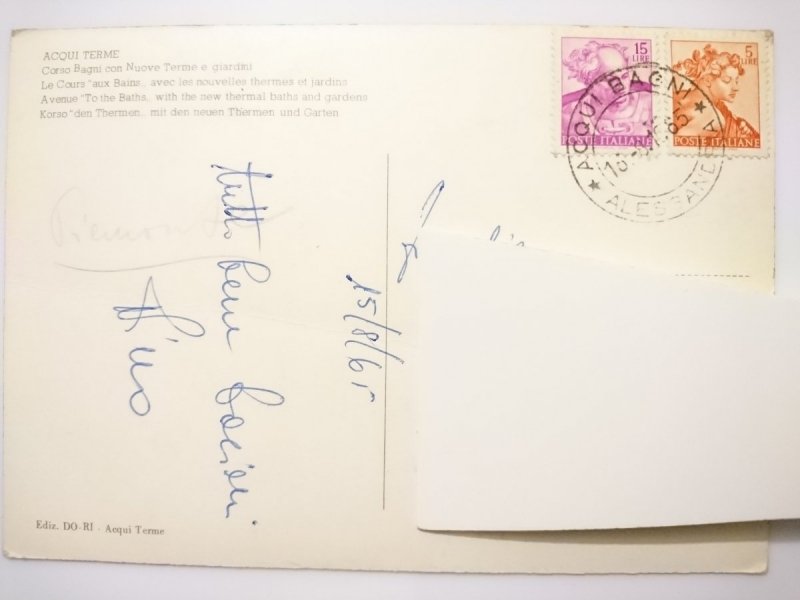 ACQUI TERME
Corso Bagni con Nuove Terme e giardini
Le Cours "aux Bains„ avec les nouvelles thermes et jardins
Avenue "To the Baths„ with the new thermal baths and gardens
Korso "den Thermen„ mit den neuen Thermen und Garten
15
LIRE
POSTE ITALIANE
5
LIRE
POSTE ITALIANE
ACQUI BAGNI
ALESSANDRIA
Piemonte
tutto bene
15/8/65
Ediz. DO-RI - Acqui Terme